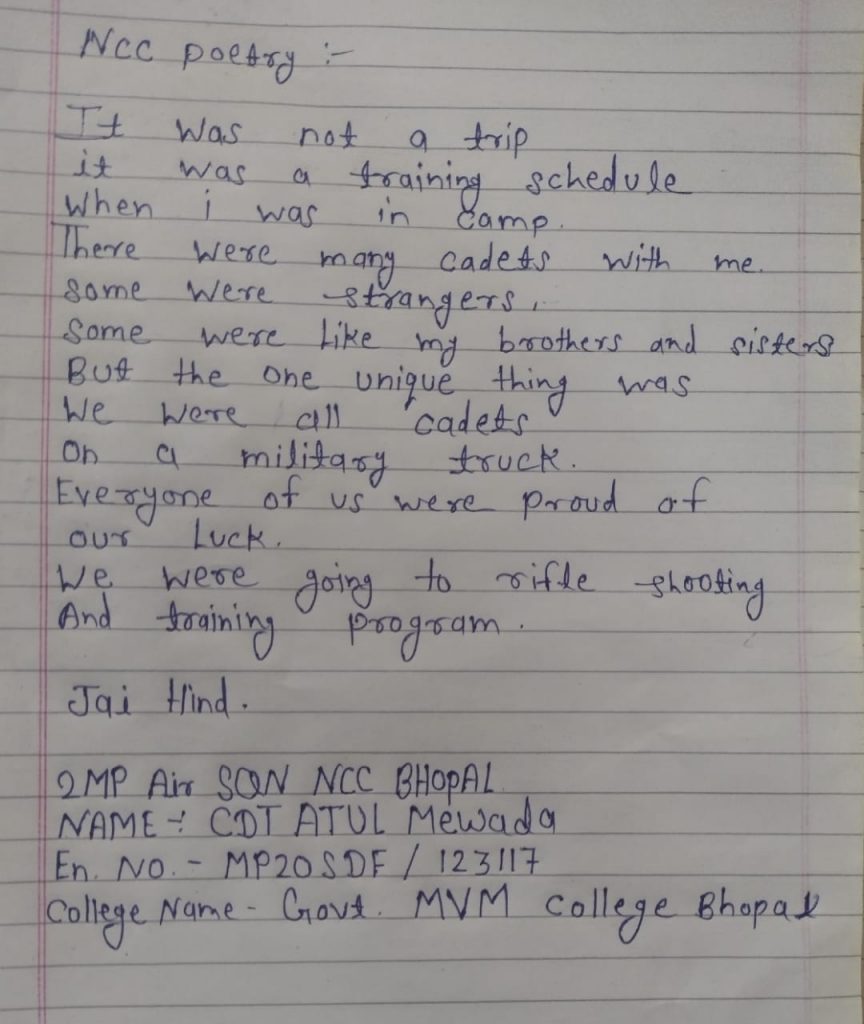 NCC poetry :-
It was not a trip
it was a training schedule
When i was in camp.
There were many cadets with me.
some were strangers,
Some were like my brothers and sisters
But the one unique thing was
We were all cadets
On a military truck.
Everyone of us were proud of
our Luck.
We were going to rifle shooting
And training program.
Jai Hind.
2MP Air SQN NCC BHOPAL
NAME :- CDT ATUL Mewada
En. NO. - MP20SDF / 123117
College Name - Govt. MVM College Bhopal